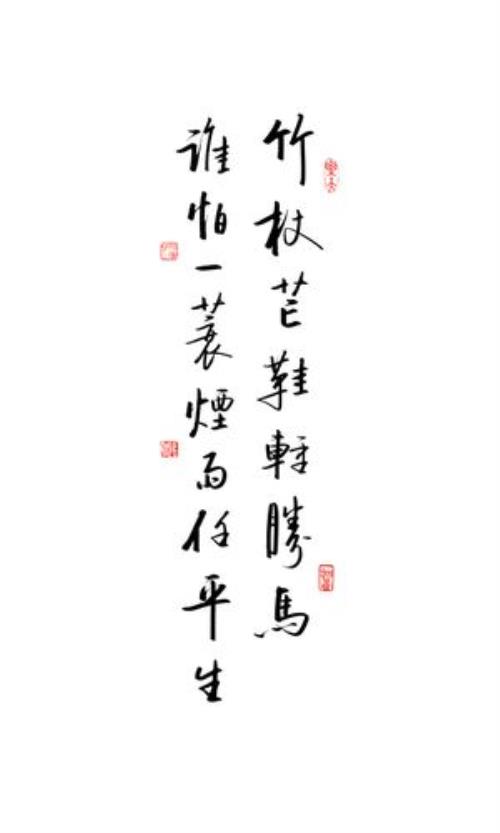 竹杖芒鞋輕勝馬
誰怕一蓑煙雨任平生